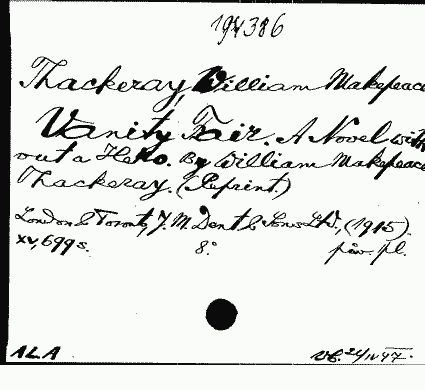 194386
Thackeray, William Makepeace
Vanity Fair. A Novel with-
out a Hero. By William Makepeace
Thackeray. (Reprint.)
London & Toronto, J. M. Dent & Sons Ltd., (1915).
xv, 699 s. 8° påv. pl.
ALA